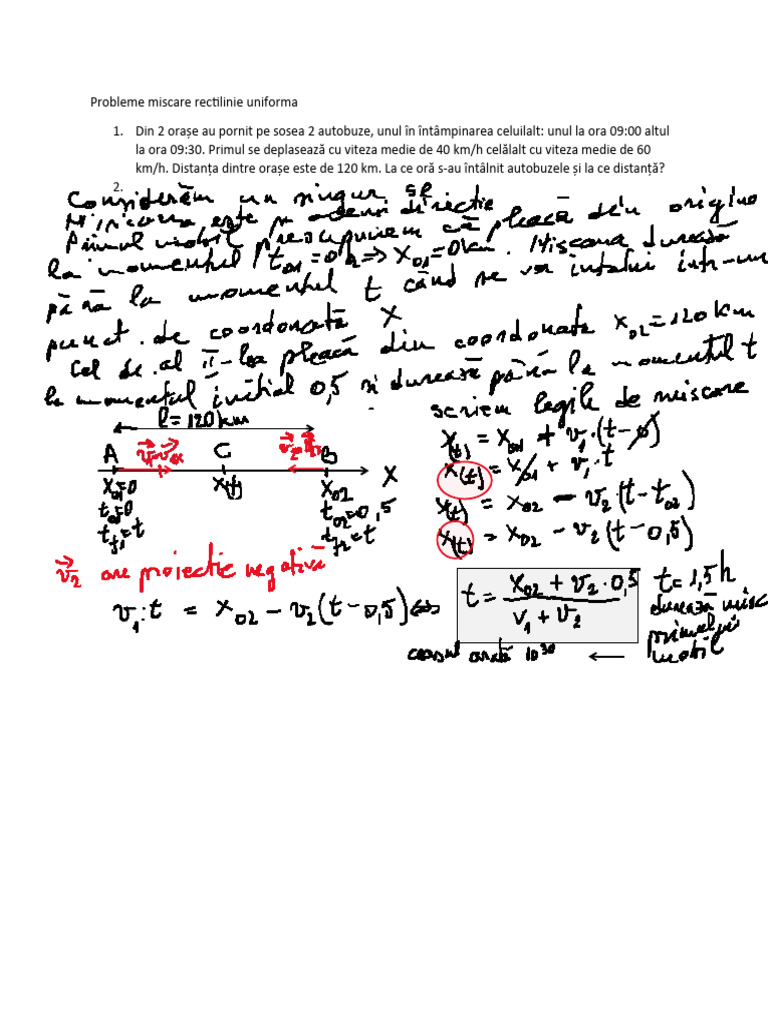 Probleme miscare rectilinie uniforma
1. Din 2 orașe au pornit pe sosea 2 autobuze, unul în întâmpinarea celuilalt: unul la ora 09:00 altul
la ora 09:30. Primul se deplasează cu viteza medie de 40 km/h celălalt cu viteza medie de 60
km/h. Distanța dintre orașe este de 120 km. La ce oră s-au întâlnit autobuzele și la ce distanță?
2.
Considerăm un singur SR
este directie
Primul mobil presupunem că pleacă din origine
la momentul t₀₁=0 => X₀₁=0km. Miscarea durează
până la momentul t când se vor într-un
punct de coordonată X
Cel de al II-lea pleacă din coordonata X₀₂=120km
la momentul initial 0,5 si durează până la momentul t
scriem legile de miscare
l=120km
A C B X
X₀₁=0 X(t) X₀₂
t₀₁=0 t₀₂=0,5
t_f1=t t_f2=t
X(t) = X₀₁ + v₁·(t-0)
X(t) = X₀₁ + v₁·t
X(t) = X₀₂ - v₂(t-t₀₂)
X(t) = X₀₂ - v₂(t-0,5)
v₂ are proiectie negativă
v₁·t = X₀₂ - v₂(t-0,5) <=>
t = (X₀₂ + v₂·0,5)/(v₁ + v₂)
t=1,5h
durează misc
primului
mobil
ceasul arată 10³⁰ ←